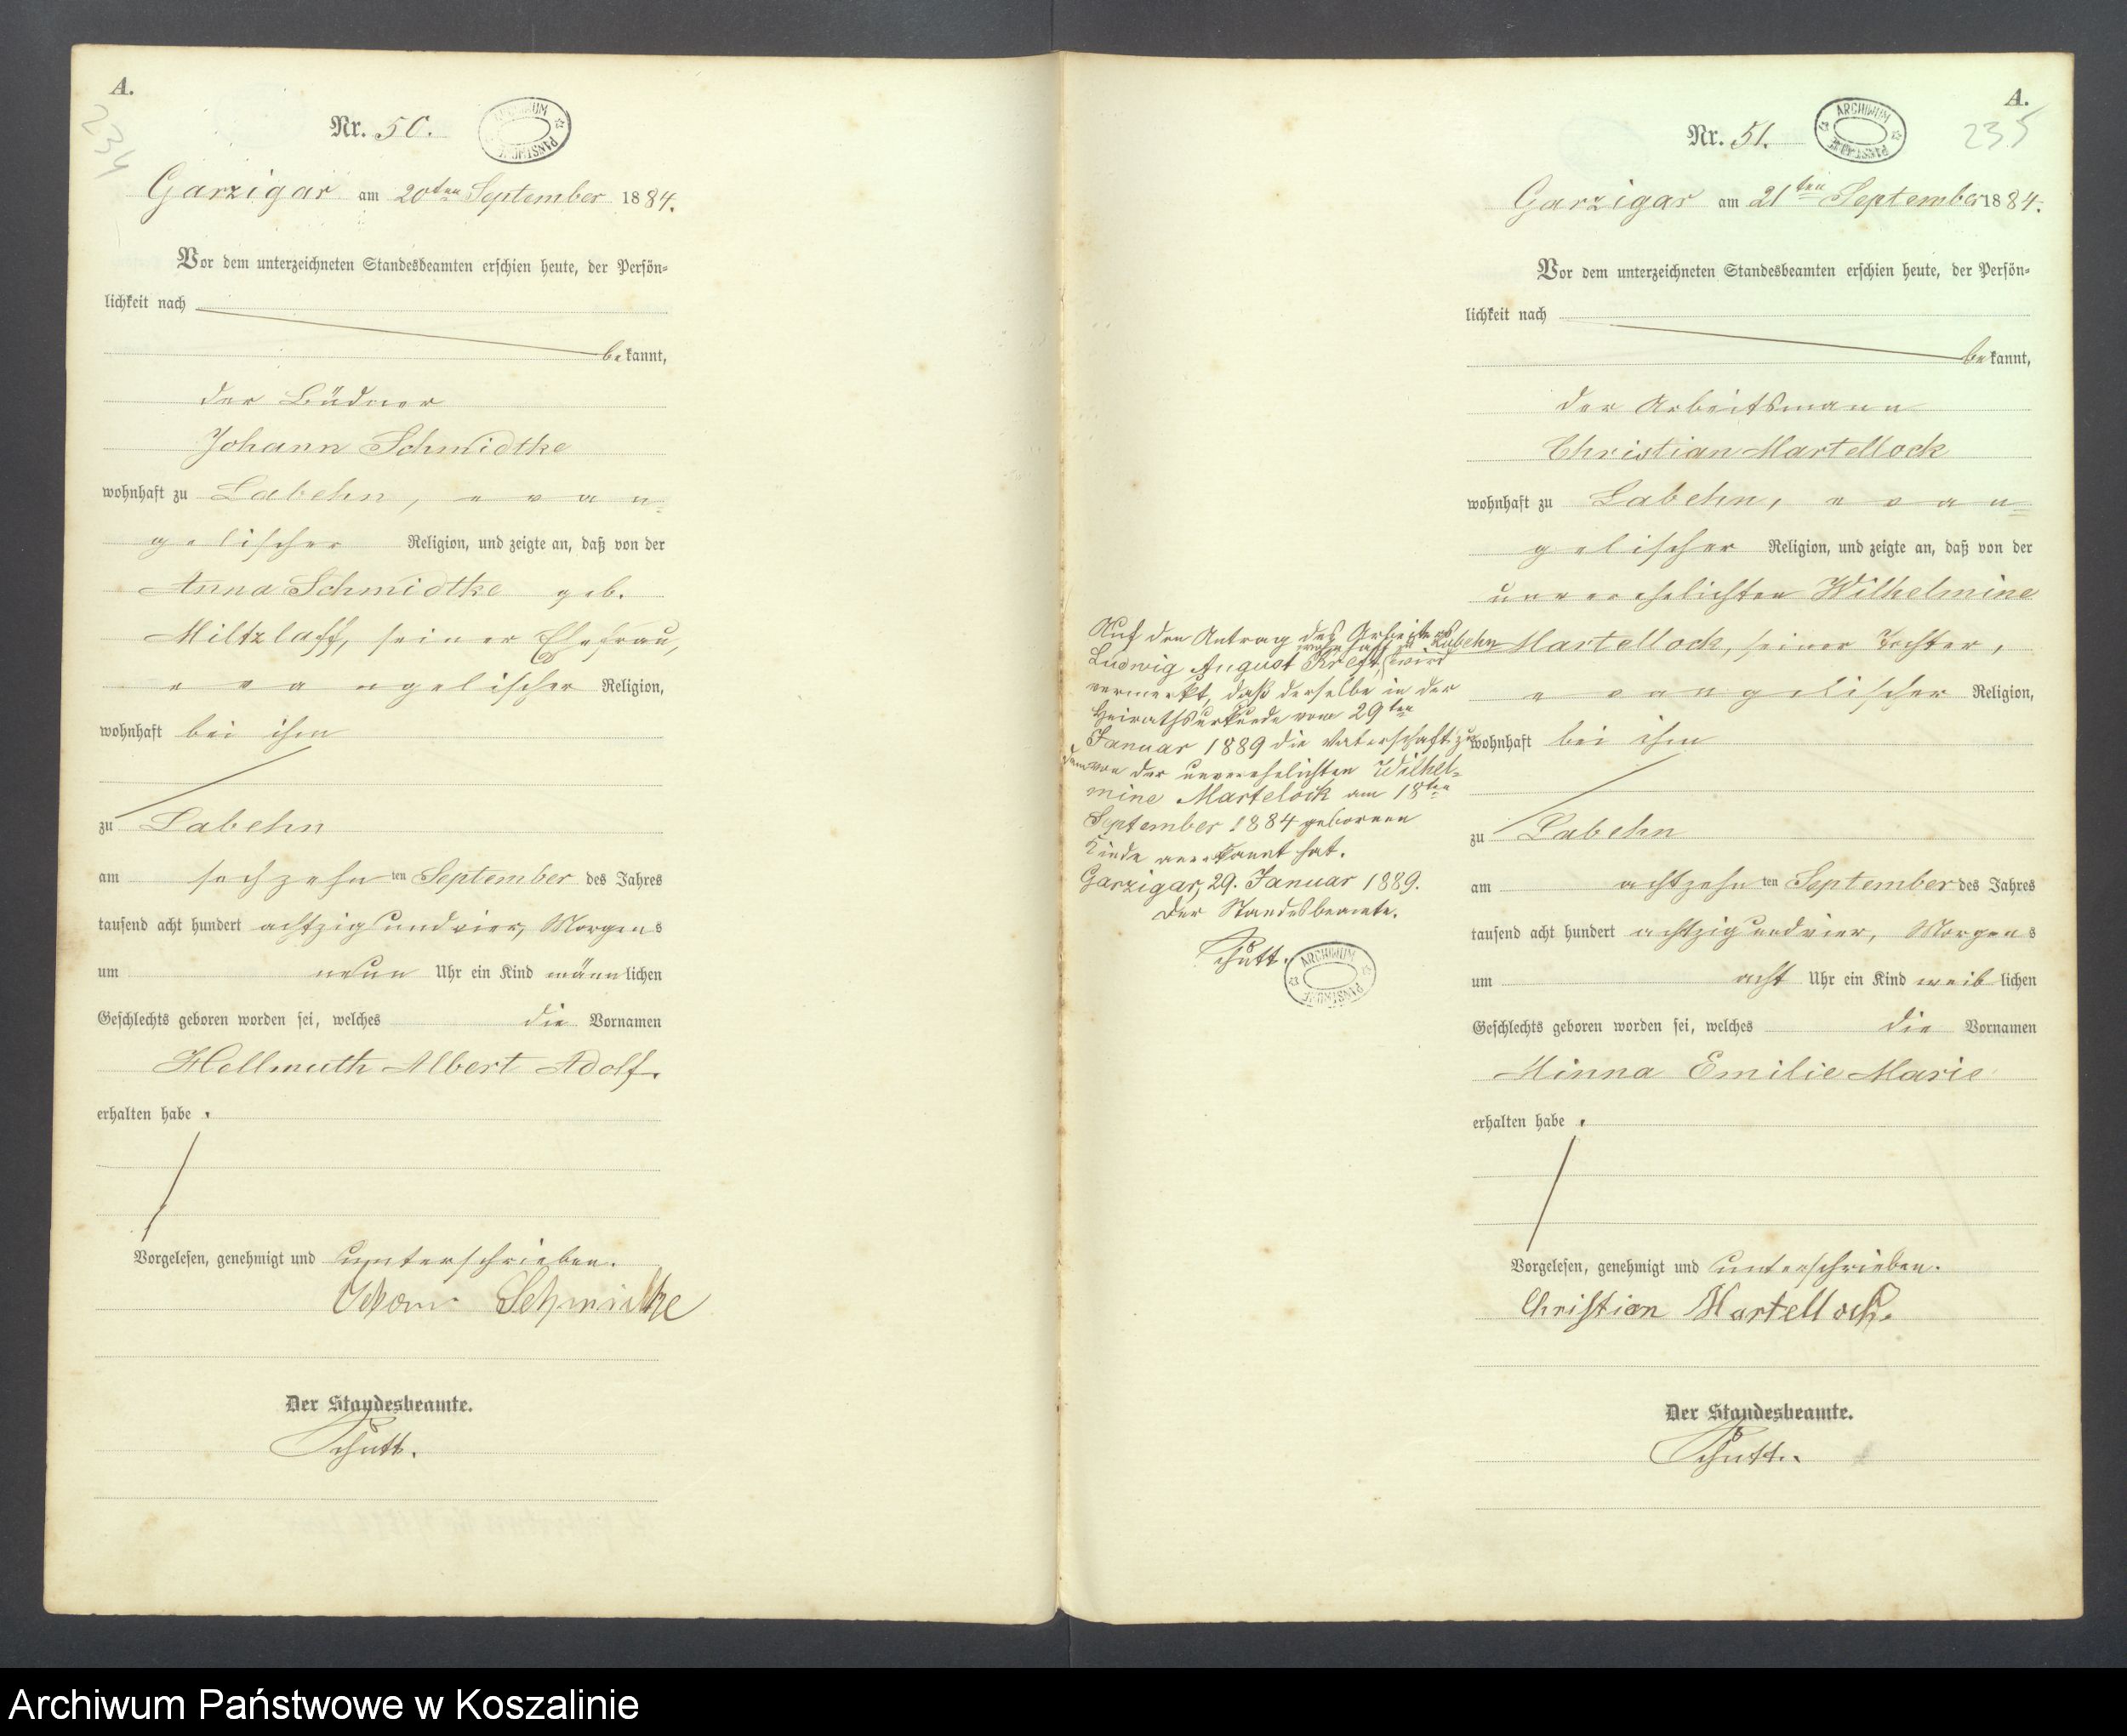 A.
234
Nr. 50.
ARCHIWUM PAŃSTWOWE
Garzigar am 20ten September 1884.
Vor dem unterzeichneten Standesbeamten erschien heute, der Persön-
lichkeit nach
bekannt,
der Büdner
Johann Schmidtke
wohnhaft zu Labehn, evan-
gelischer Religion, und zeigte an, daß von der
Anna Schmidtke geb.
Miltzlaff, seiner Ehefrau,
evangelischer Religion,
wohnhaft bei ihm
zu Labehn
am sechzehnten September des Jahres
tausend acht hundert achtzig und vier, Morgens
um neun Uhr ein Kind männlichen
Geschlechts geboren worden sei, welches die Vornamen
Hellmuth Albert Adolf.
erhalten habe.
Vorgelesen, genehmigt und unterschrieben.
Schmidtke
Der Standesbeamte.
Schütt.
A.
235
Nr. 51.
ARCHIWUM PAŃSTWOWE
Garzigar am 21ten September 1884.
Vor dem unterzeichneten Standesbeamten erschien heute, der Persön-
lichkeit nach
bekannt,
der Arbeitsmann
Christian Martellock
wohnhaft zu Labehn, evan-
gelischer Religion, und zeigte an, daß von der
unverehelichten Wilhelmine
Martellock, seiner Tochter,
evangelischer Religion,
wohnhaft bei ihm
zu Labehn
am achtzehnten September des Jahres
tausend acht hundert achtzig und vier, Morgens
um acht Uhr ein Kind weiblichen
Geschlechts geboren worden sei, welches die Vornamen
Minna Emilie Marie
erhalten habe.
Vorgelesen, genehmigt und unterschrieben.
Christian Martellock.
Der Standesbeamte.
Schütt.
Auf den Antrag des Arbeiters
wohnhaft zu Labehn
Ludwig August Kreft, wird
vermerkt, daß derselbe in der
Heirathsurkunde vom 29ten
Januar 1889 die Vaterschaft zu
dem von der unverehelichten Wilhel-
mine Martelock am 18ten
September 1884 geborenen
Kinde anerkannt hat.
Garzigar, 29. Januar 1889.
Der Standesbeamte.
Schütt.
ARCHIWUM PAŃSTWOWE
Archiwum Państwowe w Koszalinie